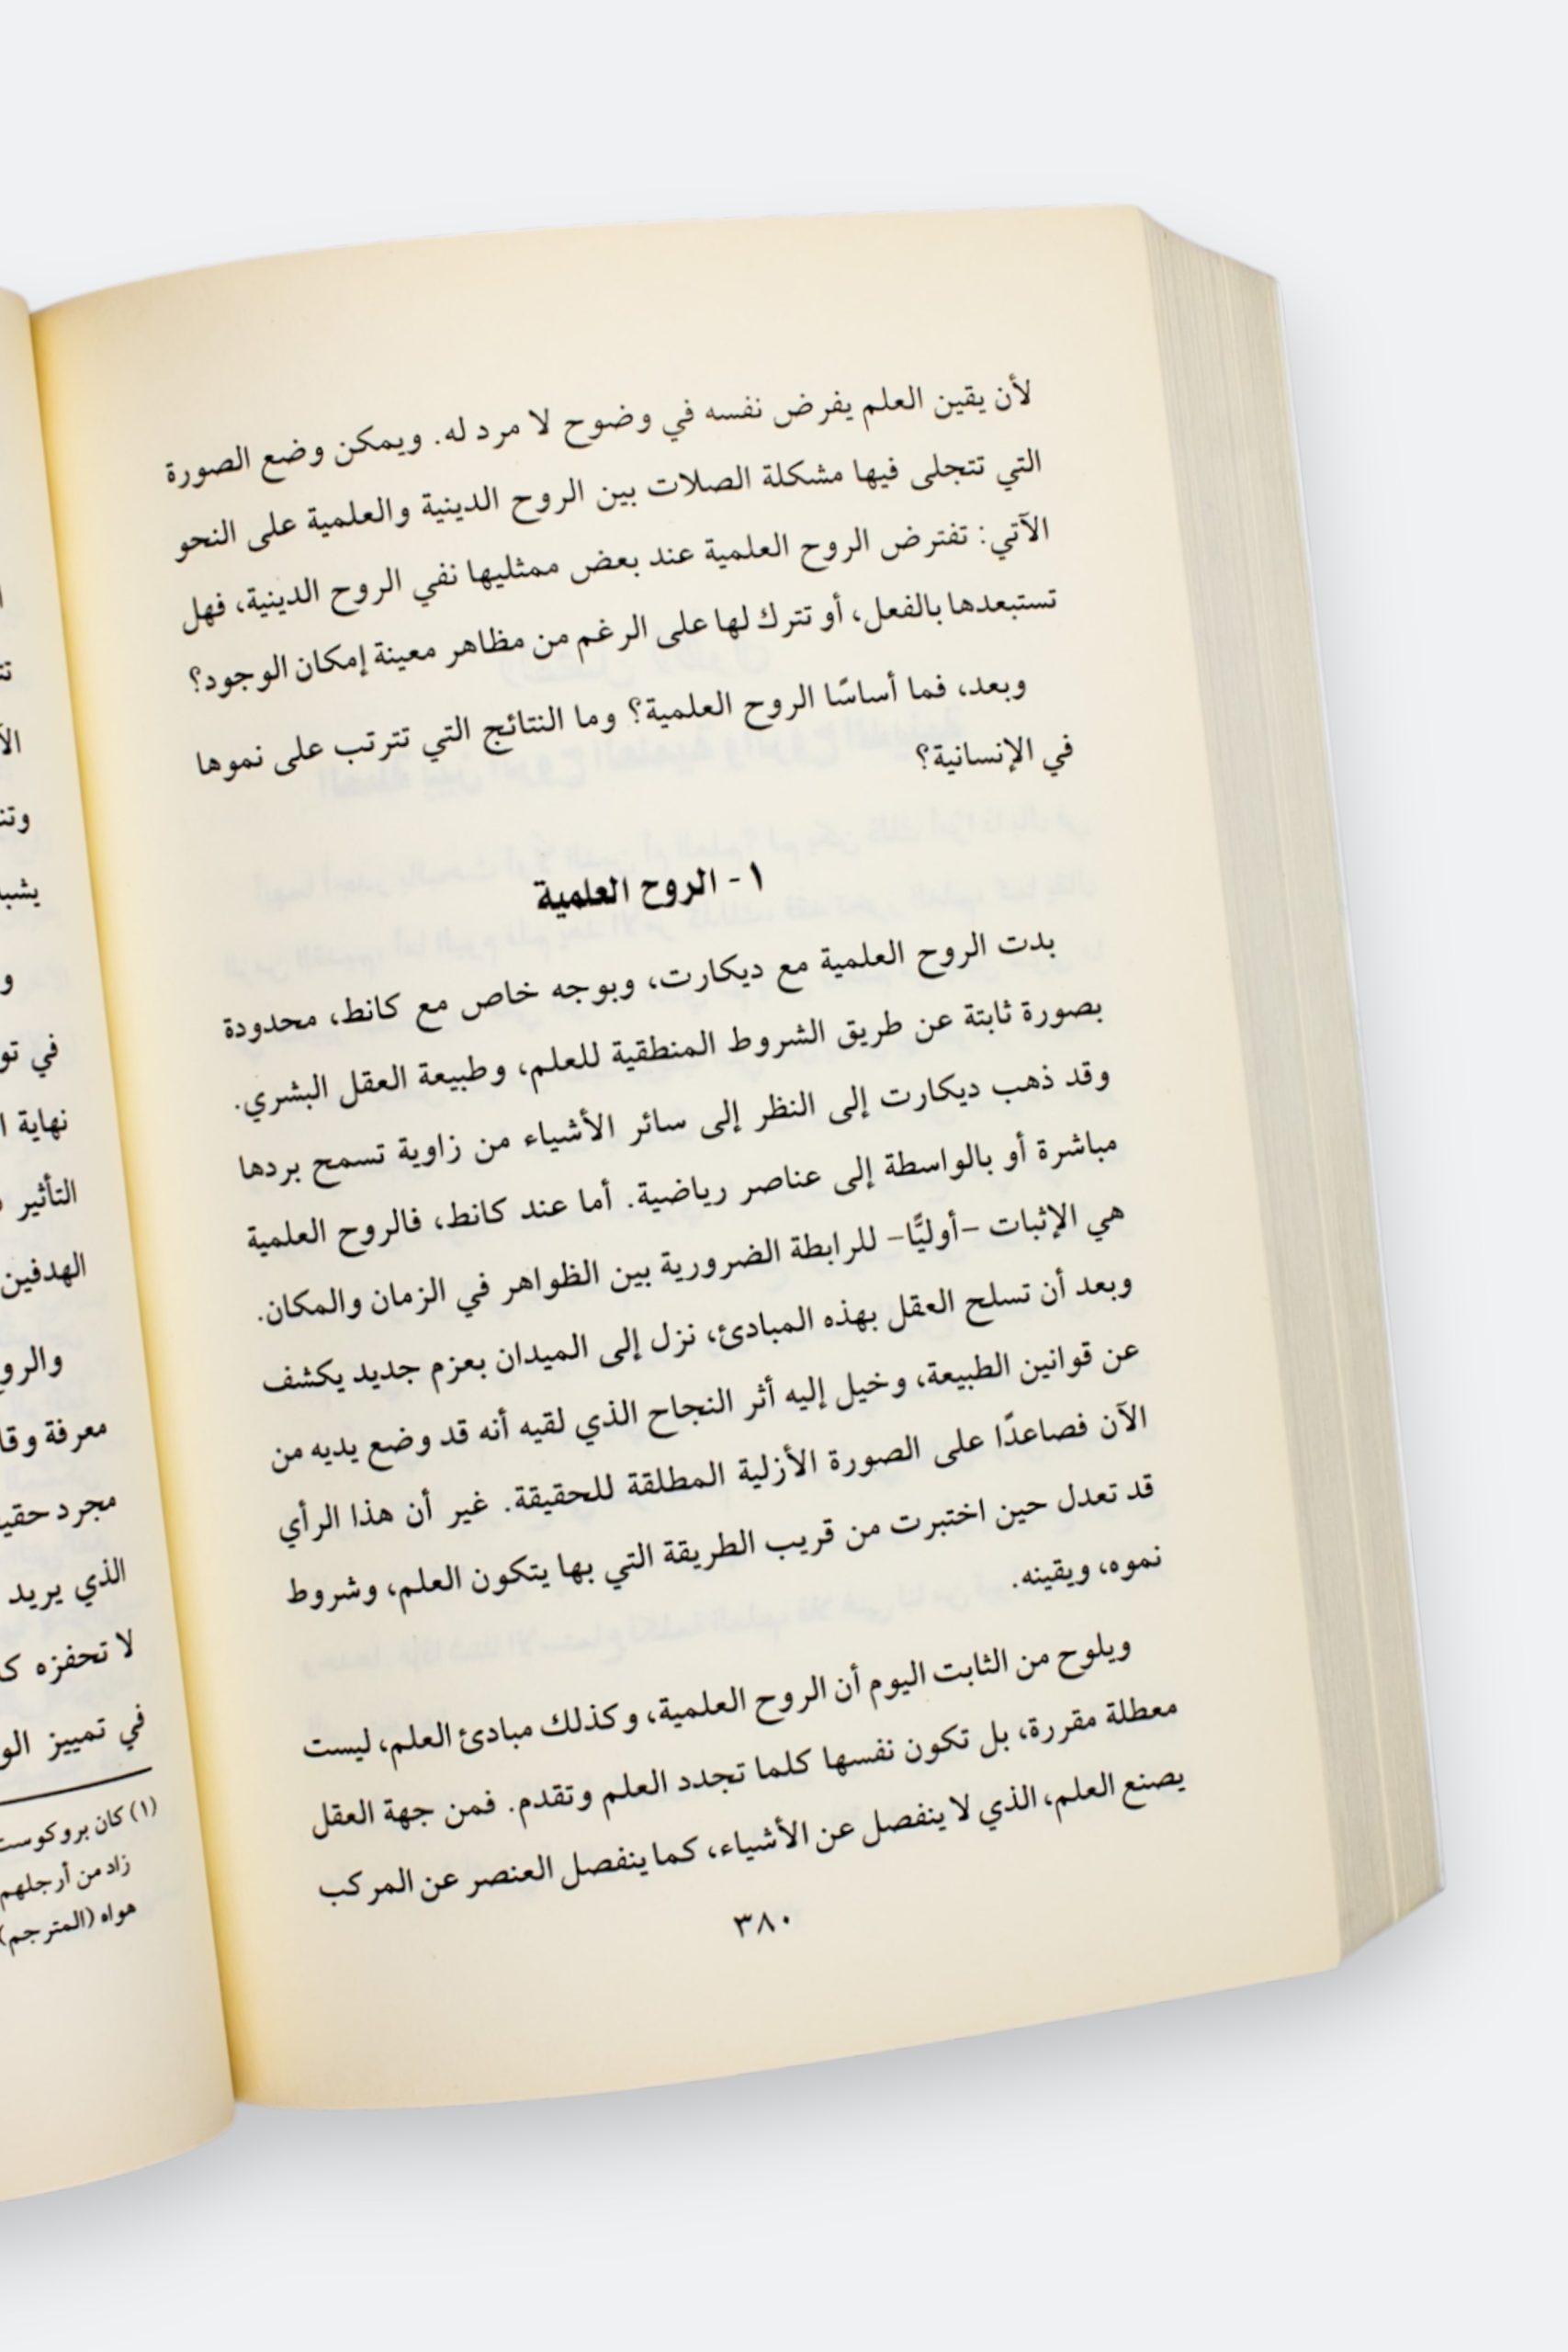 لأن يقين العلم يفرض نفسه في وضوح لا مرد له. ويمكن وضع الصورة
التي تتجلى فيها مشكلة الصلات بين الروح الدينية والعلمية على النحو
الآتي: تفترض الروح العلمية عند بعض ممثليها نفي الروح الدينية، فهل
تستبعدها بالفعل، أو تترك لها على الرغم من مظاهر معينة إمكان الوجود؟
وبعد، فما أساسًا الروح العلمية؟ وما النتائج التي تترتب على نموها
في الإنسانية؟
١- الروح العلمية
بدت الروح العلمية مع ديكارت، وبوجه خاص مع كانط، محدودة
بصورة ثابتة عن طريق الشروط المنطقية للعلم، وطبيعة العقل البشري.
وقد ذهب ديكارت إلى النظر إلى سائر الأشياء من زاوية تسمح بردها
مباشرة أو بالواسطة إلى عناصر رياضية. أما عند كانط، فالروح العلمية
هي الإثبات -أوليًّا- للرابطة الضرورية بين الظواهر في الزمان والمكان.
وبعد أن تسلح العقل بهذه المبادئ، نزل إلى الميدان بعزم جديد يكشف
عن قوانين الطبيعة، وخيل إليه أثر النجاح الذي لقيه أنه قد وضع يديه من
الآن فصاعدًا على الصورة الأزلية المطلقة للحقيقة. غير أن هذا الرأي
قد تعدل حين اختبرت من قريب الطريقة التي بها يتكون العلم، وشروط
نموه، ويقينه.
ويلوح من الثابت اليوم أن الروح العلمية، وكذلك مبادئ العلم، ليست
معطلة مقررة، بل تكون نفسها كلما تجدد العلم وتقدم. فمن جهة العقل
يصنع العلم، الذي لا ينفصل عن الأشياء، كما ينفصل العنصر عن المركب
٣٨٠
في
نهاية
التأثير
الهدفين
معرفة
مجرد
الذي يريد
لا تحفزه
في تمييز
(١) كان
زاد من أرجلهم
هواه (المترجم)